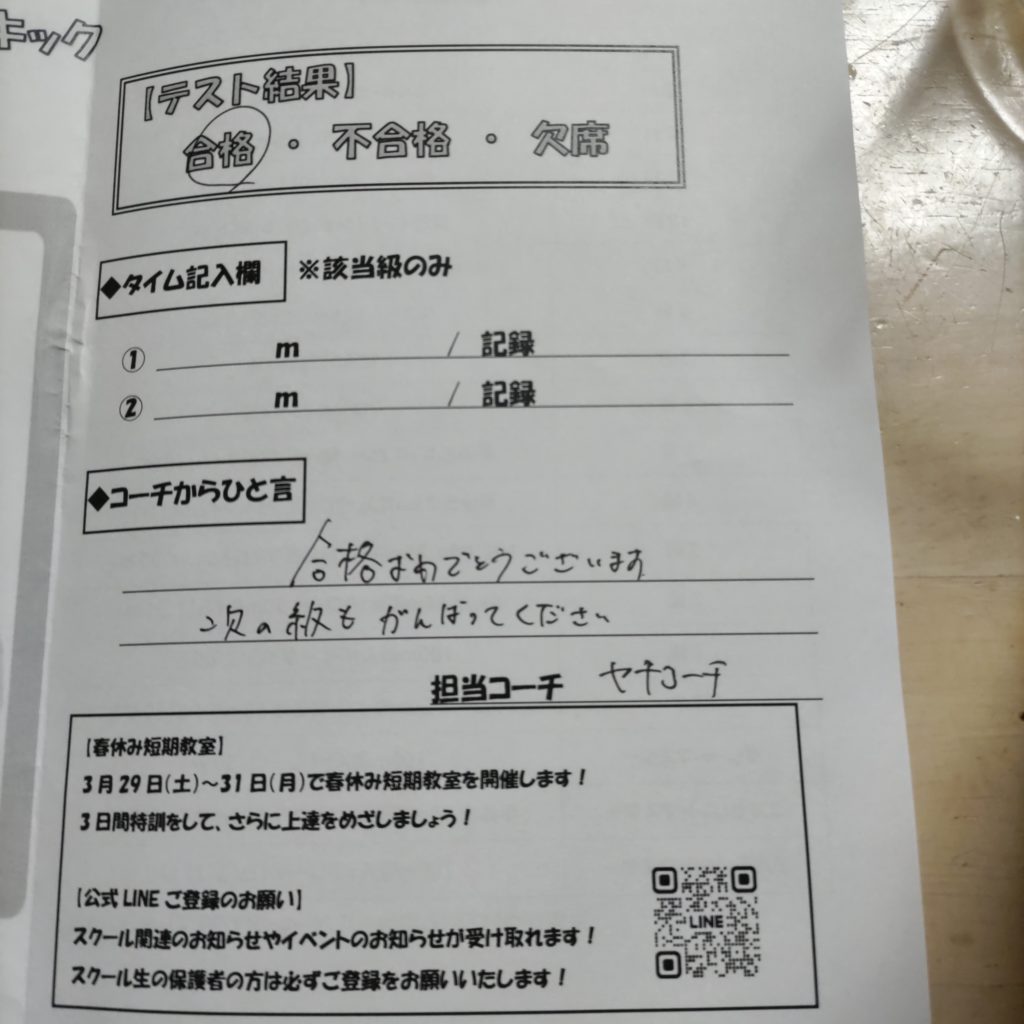 キック
【テスト結果】
合格 ・ 不合格 ・ 欠席
◆タイム記入欄 ※該当級のみ
① m / 記録
② m / 記録
◆コーチからひと言
合格おめでとうございます
次の級も がんばってください
担当コーチ ヤチコーチ
【春休み短期教室】
3月29日(土)～31日(月)で春休み短期教室を開催します！
3日間特訓をして、さらに上達をめざしましょう！
【公式LINEご登録のお願い】
スクール関連のお知らせやイベントのお知らせが受け取れます！
LINE
スクール生の保護者の方は必ずご登録をお願いいたします！